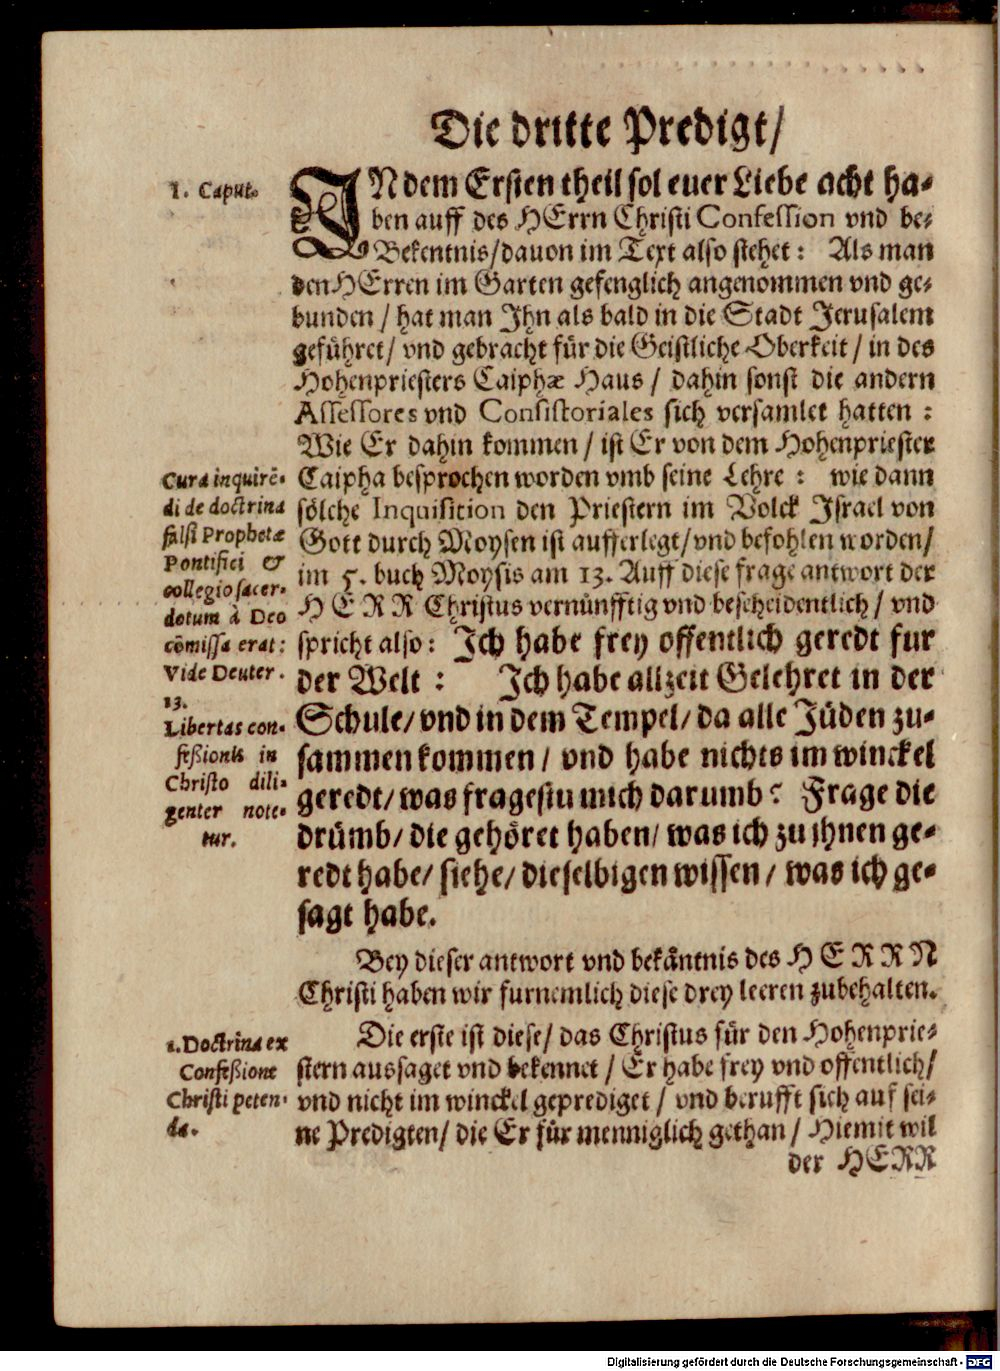 Die dritte Predigt/
1. Caput.
JN dem Ersten theil sol euer Liebe acht ha-
ben auff des HErrn Christi Confession vnd be-
Bekentnis/dauon im Text also stehet: Als man
den HErren im Garten gefenglich angenommen vnd ge-
bunden / hat man Jhn als bald in die Stadt Jerusalem
geführet/ vnd gebracht für die Geistliche Oberkeit / in des
Hohenpriesters Caiphæ Haus / dahin sonst die andern
Assessores vnd Consistoriales sich versamlet hatten :
Wie Er dahin kommen / ist Er von dem Hohenpriester
Caipha besprochen worden vmb seine Lehre : wie dann
sölche Inquisition den Priestern im Volck Jsrael von
Gott durch Moysen ist aufferlegt/vnd befohlen worden/
im 5. buch Moysis am 13. Auff diese frage antwort der
HERR Christus vernünfftig vnd bescheidentlich / vnd
spricht also: Jch habe frey offentlich geredt fur
der Welt : Jch habe allzeit Gelehret in der
Schule/ vnd in dem Tempel/ da alle Jüden zu-
sammen kommen / vnd habe nichts im winckel
geredt/ was fragestu mich darumb? Frage die
drümb/ die gehöret haben/ was ich zu ihnen ge-
redt habe/ siehe/ dieselbigen wissen / was ich ge-
sagt habe.
Cura inquirē-
di de doctrina
falsi Prophetæ
Pontifici &
collegio sacer-
dotum à Deo
cōmissa erat:
Vide Deuter.
13.
Libertas con-
feßionis in
Christo dili-
genter note-
tur.
Bey dieser antwort vnd bekäntnis des HERRN
Christi haben wir furnemlich diese drey leeren zubehalten.
1. Doctrina ex
Confeßione
Christi peten-
da.
Die erste ist diese/ das Christus für den Hohenprie-
stern aussaget vnd bekennet / Er habe frey vnd offentlich/
vnd nicht im winckel geprediget / vnd berufft sich auf sei-
ne Predigten/ die Er für menniglich gethan / Hiemit wil
der HERR
Digitalisierung gefördert durch die Deutsche Forschungsgemeinschaft - DFG